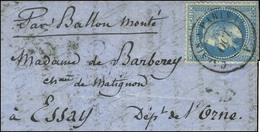 Par Ballon monté
Madame de Barberey
chau de Matignon
à Essay Dépt de l'Orne.